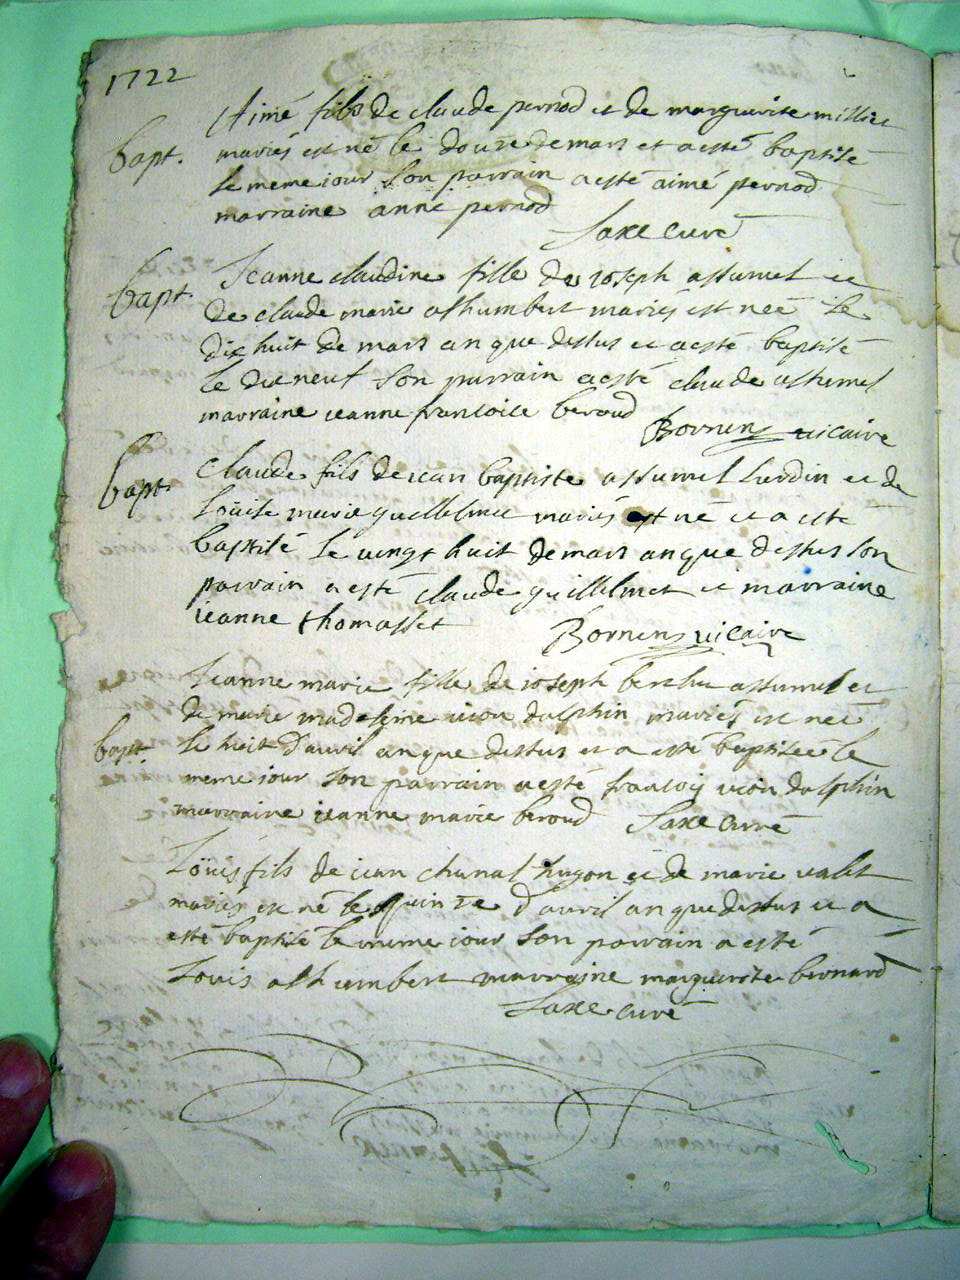 1722
Aimé fils de claude pernod et de marguerite millet
bapt. mariés est né le douze de mars et a esté baptisé
le meme iour son parrain a esté aimé pernod
marraine anne pernod
Saxe curé
Jeanne claudine fille de ioseph assumel et
bapt. de claude marie alhumbert mariés est neé le
dix huit de mars an que dessus et a esté baptisé
le dixneuf son parrain a esté claude assumel
marraine ieanne francoise beroud
Bornens vicaire
bapt. Claude fils de iean baptiste assumel lurdin et de
Loüise marie guillelmet mariés est né et a este
baptisé le vingt huit de mars an que dessus son
parrain a esté claude guillelmet et marraine
ieanne thomasset
Bornens vicaire
Jeanne marie fille de ioseph assumel et
de marie madeleine uion dalphin mariés est neé
bapt. le huit d'auril an que dessus et a esté baptiseé le
meme iour son parrain a esté francois uion dalphin
marraine ieanne marie beroud Saxe curé
Loüis fils de iean chanal hugon et de marie ualet
mariés est né le quinze d'auril an que dessus et a
esté baptisé le meme iour son parrain a esté
Louis alhumbert marraine marguerite bernard
Saxe curé